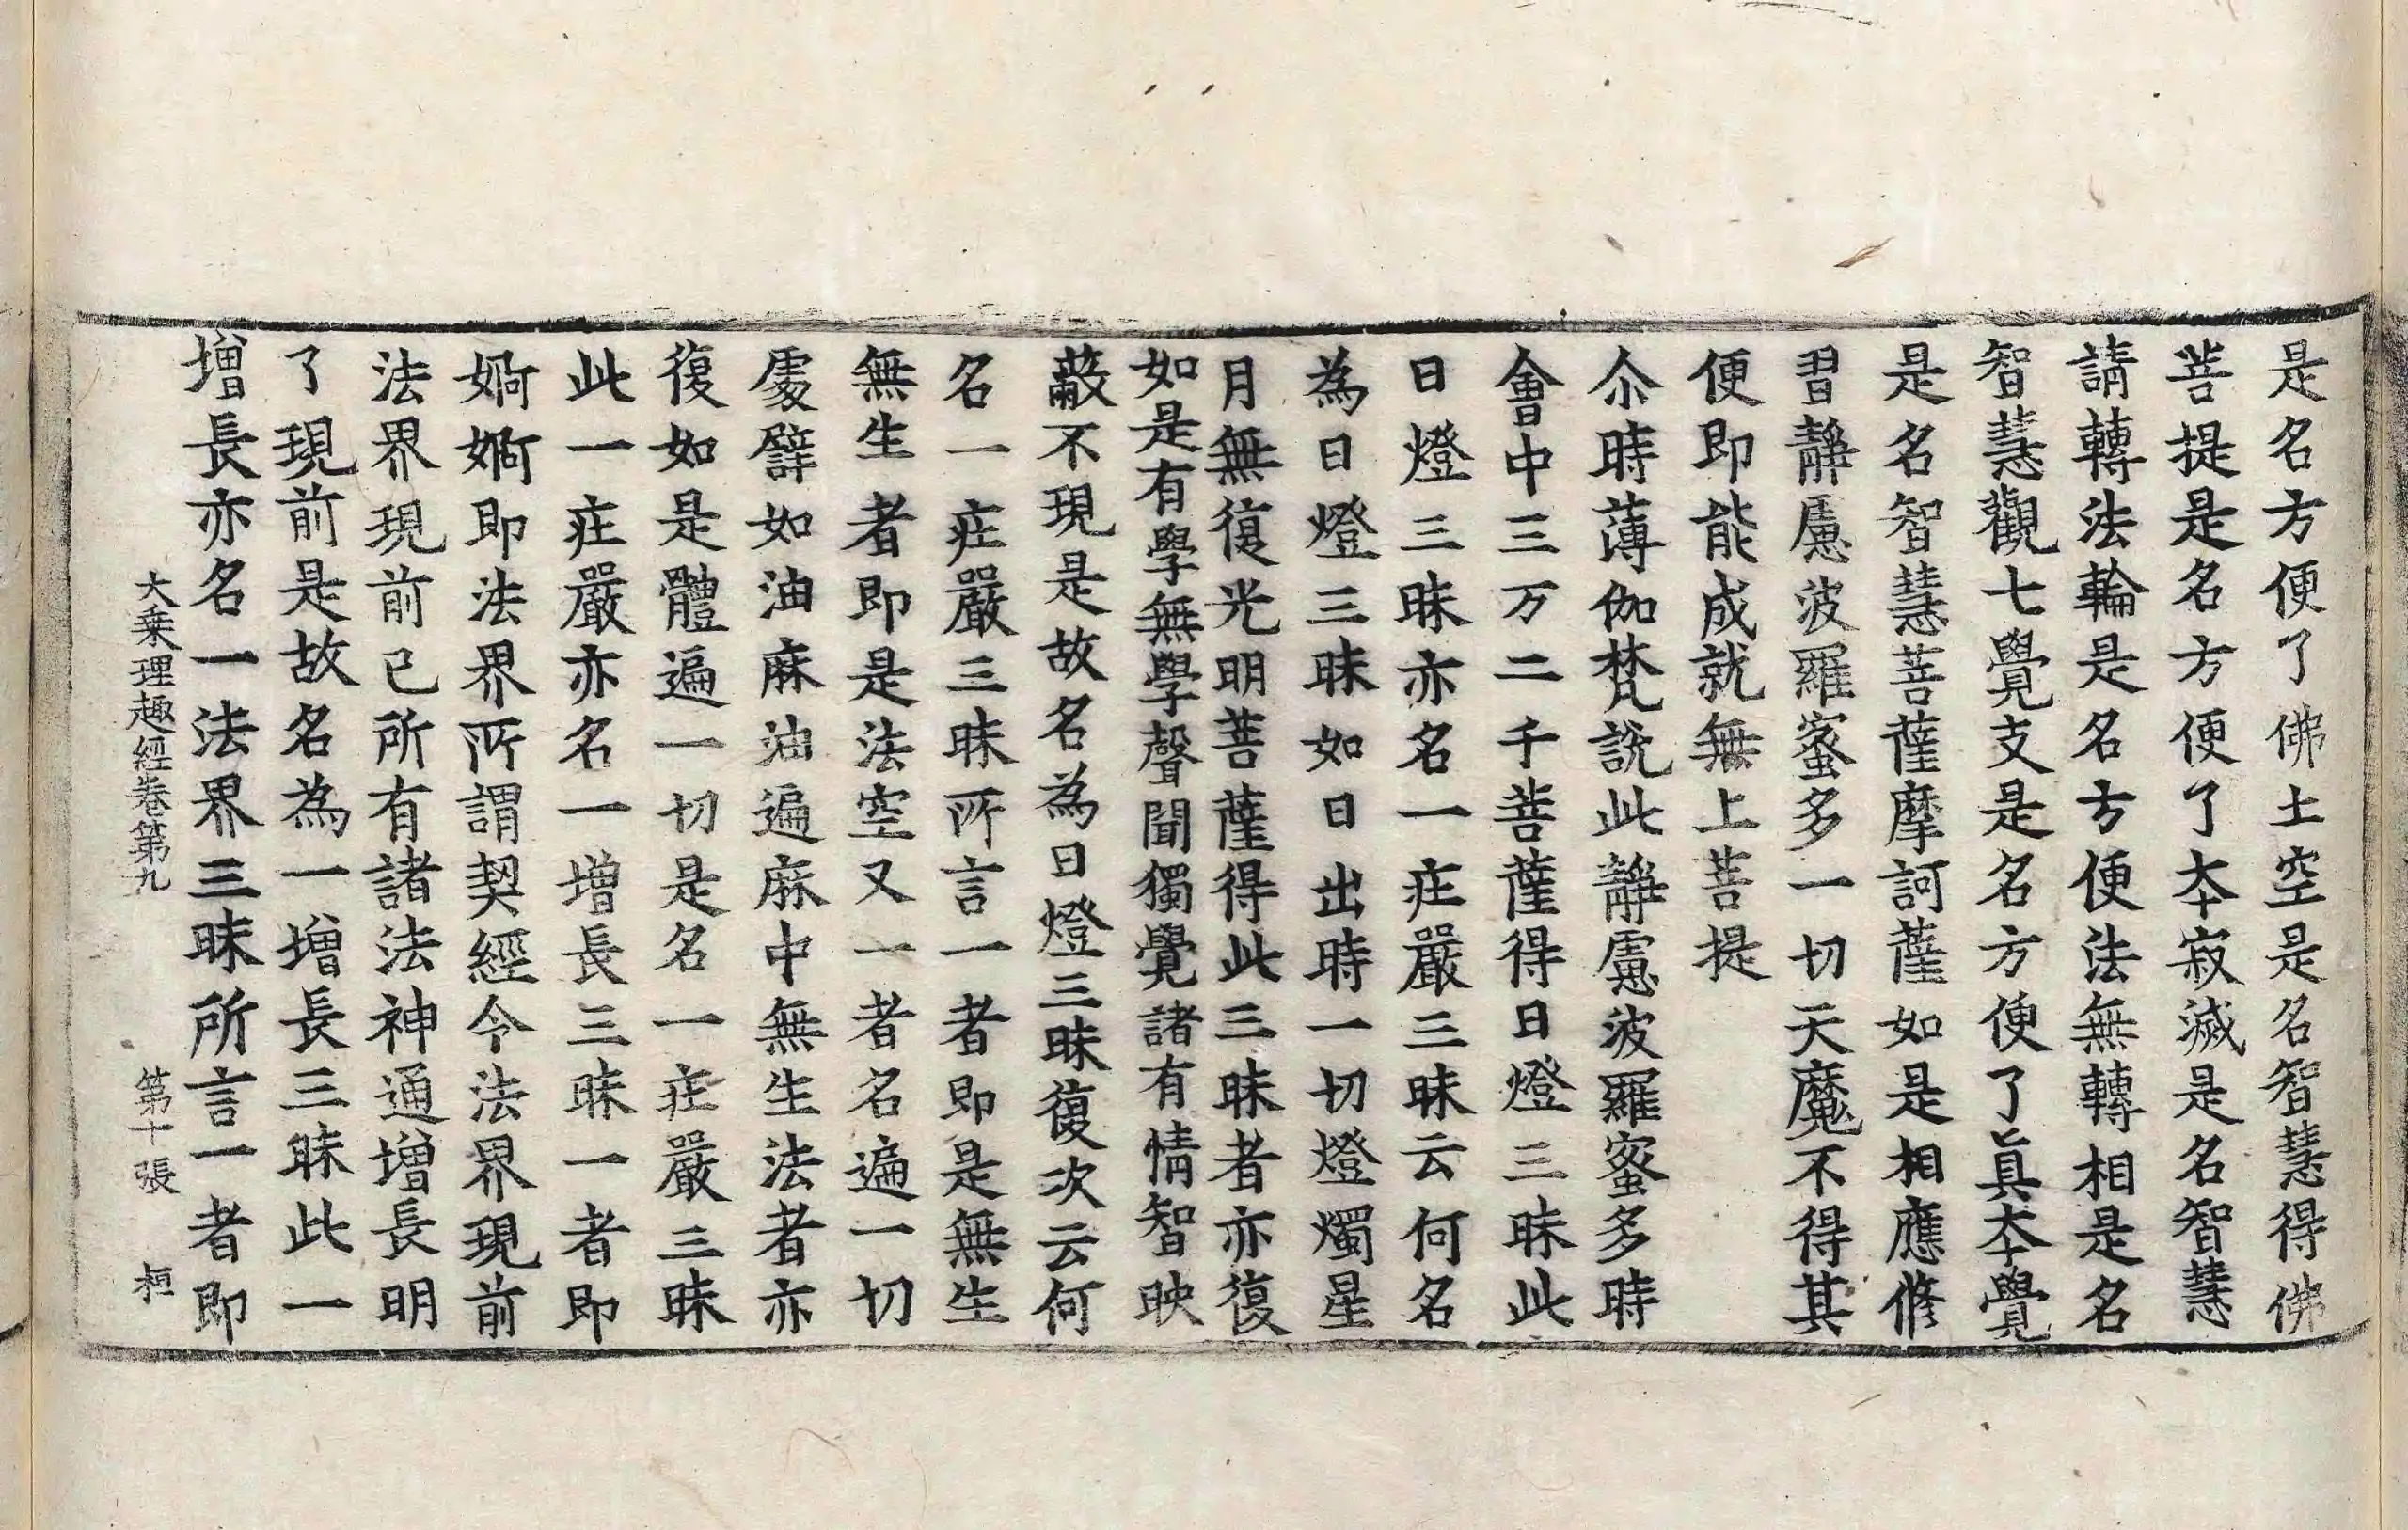 是名方便了佛土空是名智慧得佛
菩提是名方便了夲寂滅是名智慧
請轉法輪是名方便法無轉相是名
智慧觀七覺支是名方便了眞夲覺
是名智慧菩薩摩訶薩如是相應修
習靜慮波羅蜜多一切天魔不得其
便即能成就無上菩提
尒時薄伽梵說此靜慮波羅蜜多時
會中三万二千菩薩得日燈三昧此
日燈三昧亦名一㽵嚴三昧云何名
為日燈三昧如日出時一切燈燭星
月無復光明菩薩得此三昧者亦復
如是有學無學聲聞獨覺諸有情智映
蔽不現是故名為日燈三昧復次云何
名一㽵嚴三昧所言一者即是無生
無生者即是法空又一者名遍一切
處譬如油麻油遍麻中無生法者亦
復如是體遍一切是名一㽵嚴三昧
此一㽵嚴亦名一增長三昧一者即
婀婀即法界所謂契經令法界現前
法界現前已所有諸法神通增長明
了現前是故名為一增長三昧此一
增長亦名一法界三昧所言一者即
大乗理趣經卷第九 第十張 桓